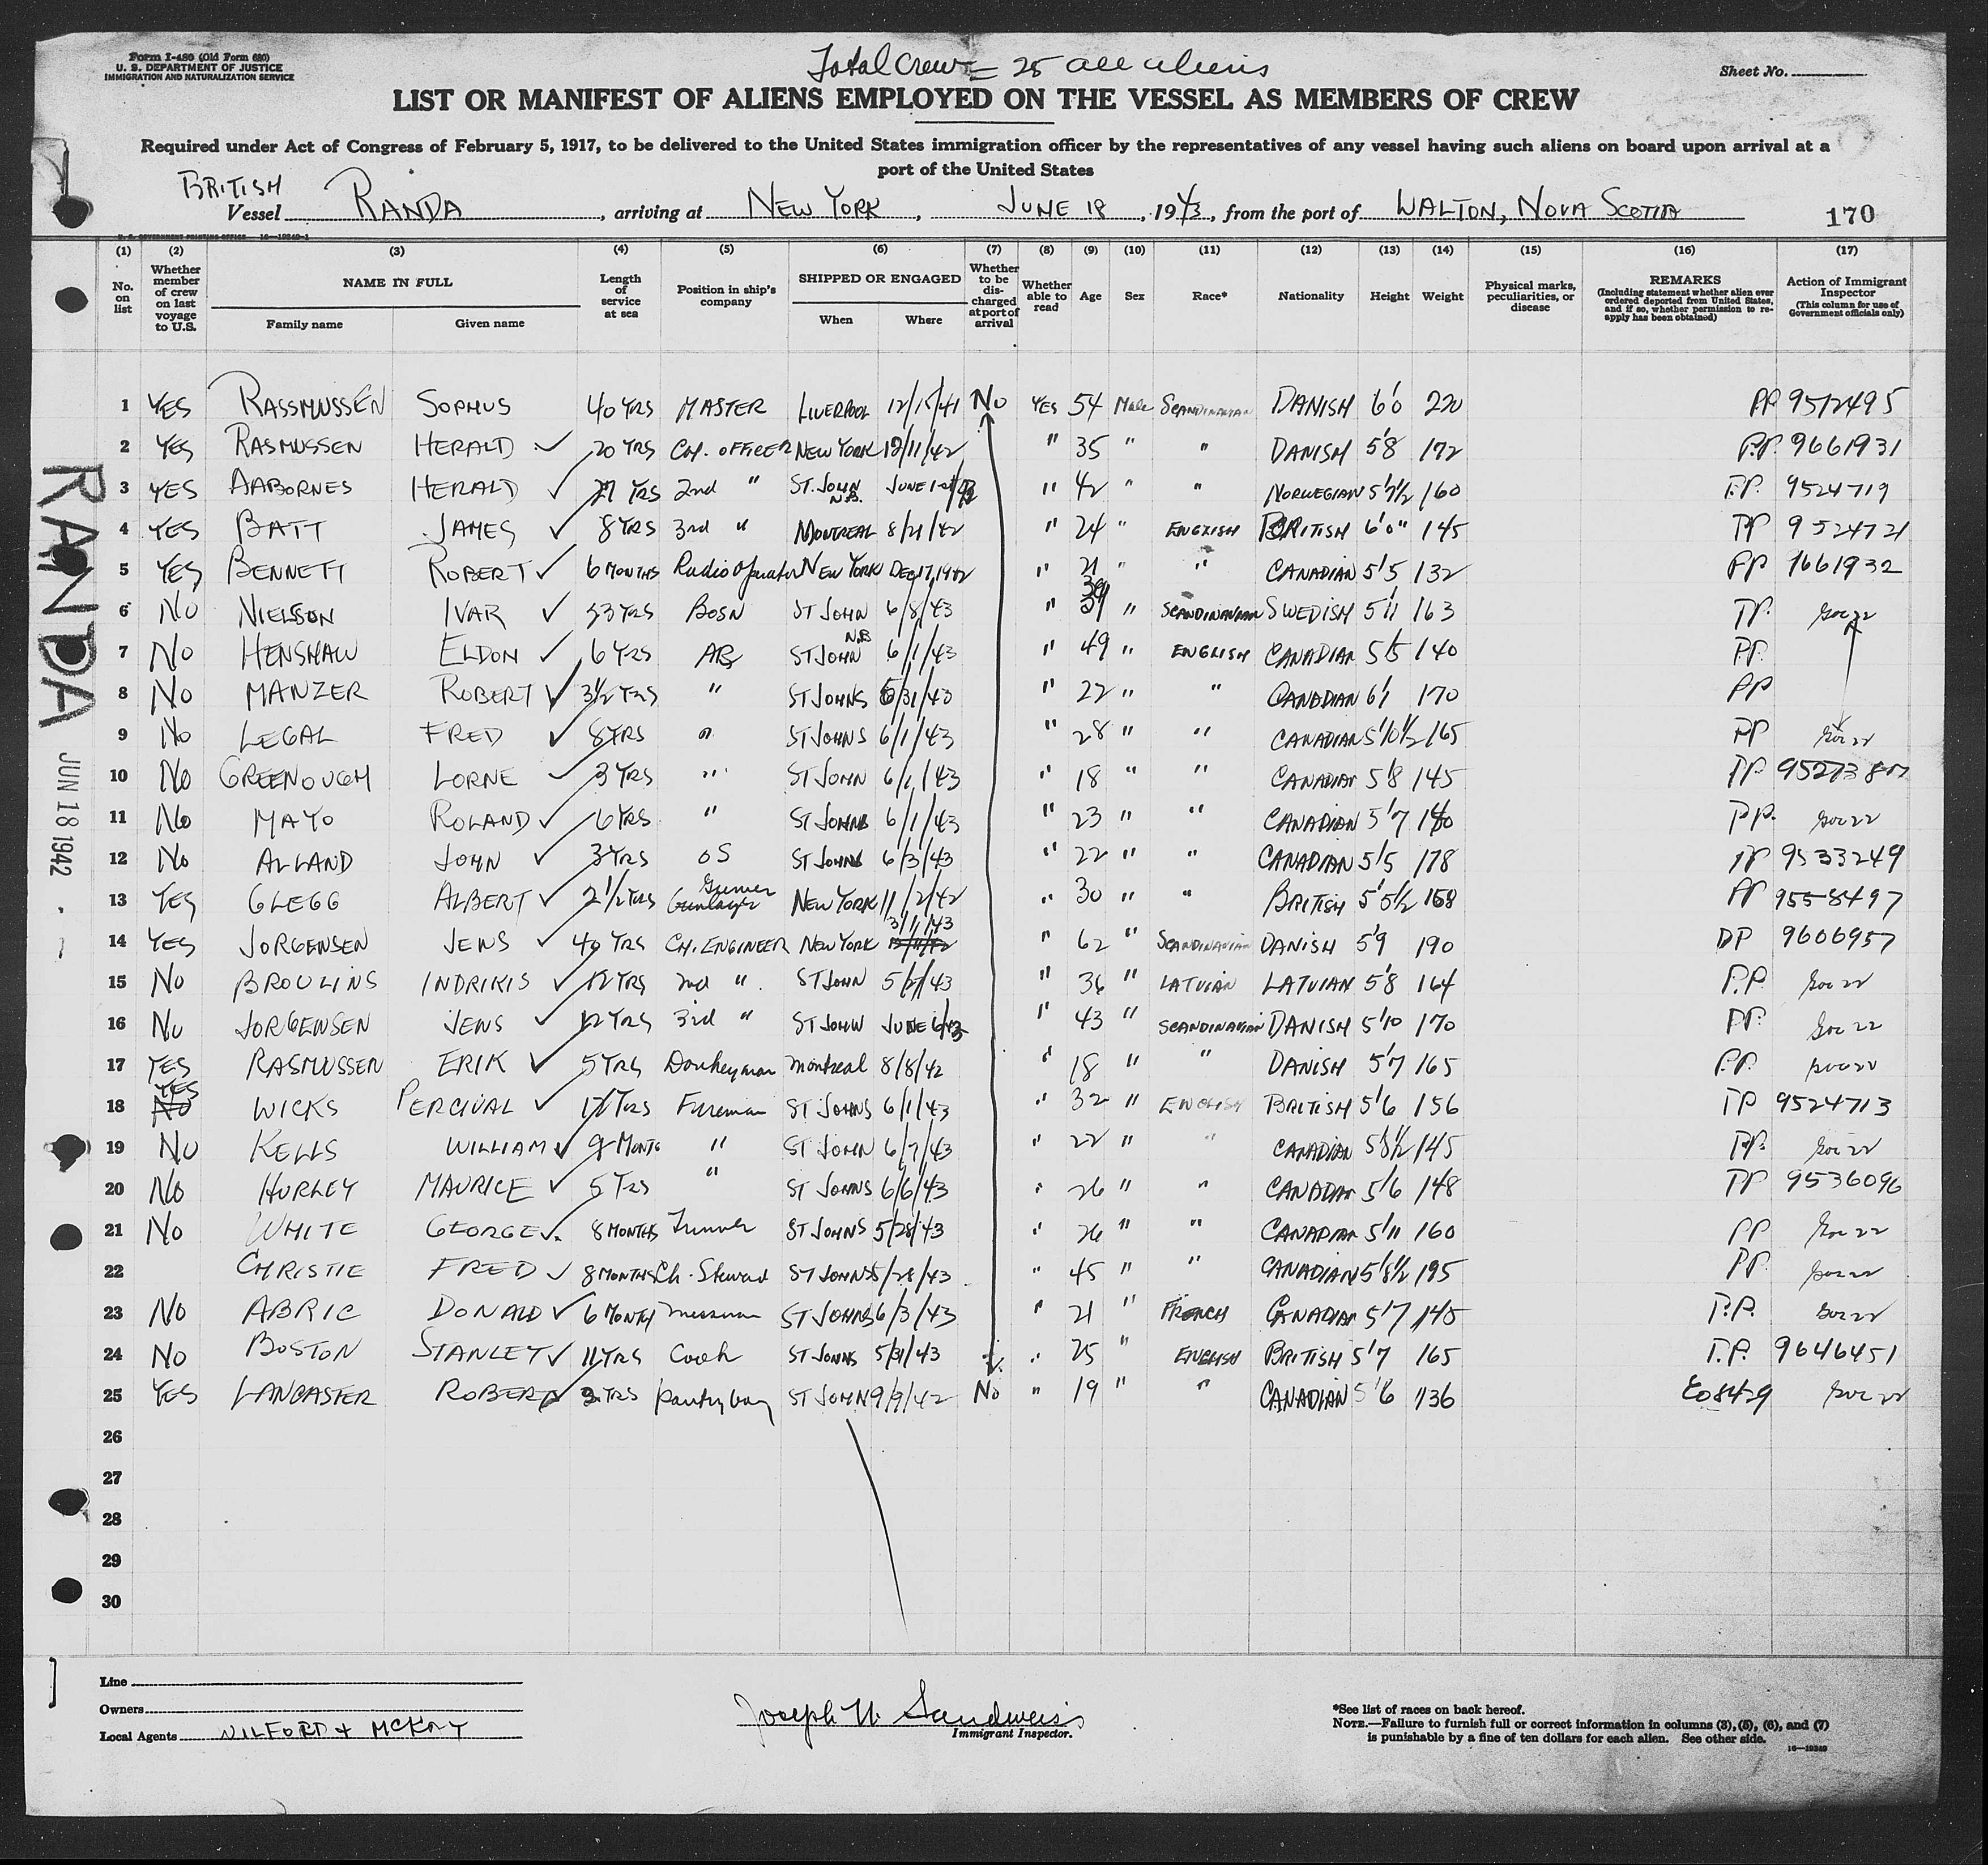 Form I-480 (Old Form 680)
U. S. DEPARTMENT OF JUSTICE
IMMIGRATION AND NATURALIZATION SERVICE
Total Crew = 25 all aliens
Sheet No.
LIST OR MANIFEST OF ALIENS EMPLOYED ON THE VESSEL AS MEMBERS OF CREW
Required under Act of Congress of February 5, 1917, to be delivered to the United States immigration officer by the representatives of any vessel having such aliens on board upon arrival at a
port of the United States
BRITISH
Vessel RANDA, arriving at NEW YORK, JUNE 18, 1943, from the port of WALTON, NOVA SCOTIA 170
U. S. GOVERNMENT PRINTING OFFICE 16—19240-1
(1) (2) (3) (4) (5) (6) (7) (8) (9) (10) (11) (12) (13) (14) (15) (16) (17)
No. on list
Whether member of crew on last voyage to U.S.
NAME IN FULL
Family name Given name
Length of service at sea
Position in ship's company
SHIPPED OR ENGAGED
When Where
Whether to be discharged at port of arrival
Whether able to read
Age Sex Race* Nationality Height Weight
Physical marks, peculiarities, or disease
REMARKS
(Including statement whether alien ever ordered deported from United States, and if so, whether permission to re-apply has been obtained)
Action of Immigrant Inspector
(This column for use of Government officials only)
1 YES RASSMUSSEN SOPHUS 40 YRS MASTER LIVERPOOL 12/15/41 No YES 54 Male SCANDINAVIAN DANISH 6'0 220 PP 9512495
2 YES RASMUSSEN HERALD ✓ 20 YRS CH. OFFICER NEW YORK 12/11/42 " 35 " " DANISH 5'8 172 P.P. 9661931
3 YES AABORNES HERALD ✓ YRS 2nd " ST. JOHN N.B. JUNE " 42 " " NORWEGIAN 5'7½ 160 P.P. 9524719
4 YES BATT JAMES ✓ 8 YRS 3rd " MONTREAL 8/21/42 " 24 " ENGLISH BRITISH 6'0" 145 PP 9524721
5 YES BENNETT ROBERT ✓ 6 MONTHS Radio Operator NEW YORK DEC 17, 1942 " 21 " " CANADIAN 5'5 132 PP 1661932
6 No NIELSSON IVAR ✓ 23 YRS BOSN ST JOHN 6/8/43 " 39 " SCANDINAVIAN SWEDISH 5'11 163 PP.
7 No HENSHAW ELDON ✓ 6 YRS AB ST JOHN N.B 6/1/43 " 49 " ENGLISH CANADIAN 5'5 140 PP.
8 No MANZER ROBERT ✓ 3½ YRS " ST JOHNS 5/31/43 " 22 " " CANADIAN 6'1 170 PP
9 No LEGAL FRED ✓ 8 YRS " ST JOHNS 6/1/43 " 28 " " CANADIAN 5'10½ 165 PP
10 No GREENOUGH LORNE ✓ 3 YRS " ST JOHN 6/1/43 " 18 " " CANADIAN 5'8 145 PP
11 No MAYO ROLAND ✓ 6 YRS " ST JOHNS 6/1/43 " 23 " " CANADIAN 5'7 140 P.P.
12 No ALLAND JOHN ✓ 3 YRS OS ST JOHNS 6/3/43 " 22 " " CANADIAN 5'5 178 PP 9533249
13 YES GLEGG ALBERT ✓ 2½ YRS Gunner Gunlayer NEW YORK 11/2/42 " 30 " " BRITISH 5'5½ 158 PP 9558497
14 YES JORGENSEN JENS ✓ 40 YRS CH. ENGINEER NEW YORK 3/1/43 " 62 " SCANDINAVIAN DANISH 5'9 190 PP 9606957
15 No BROULINS INDRIKIS ✓ 12 YRS 2nd " ST JOHN 5/27/43 " 36 " LATVIAN LATVIAN 5'8 164 P.P.
16 No JORGENSEN JENS ✓ 12 YRS 3rd " ST JOHN JUNE 6/43 " 43 " SCANDINAVIAN DANISH 5'10 170 PP.
17 YES RASMUSSEN ERIK ✓ 5 YRS Donkeyman Montreal 8/8/42 " 18 " " DANISH 5'7 165 P.P.
18 YES No WICKS PERCIVAL ✓ 17 YRS Fireman ST JOHNS 6/1/43 " 32 " ENGLISH BRITISH 5'6 156 PP 9524713
19 No KELLS WILLIAM ✓ 9 MONTHS " ST JOHN 6/7/43 " 22 " " CANADIAN 5'8½ 145 PP.
20 No HURLEY MAURICE ✓ 5 YRS " ST JOHNS 6/6/43 " 26 " " CANADIAN 5'6 148 PP 9536096
21 No WHITE GEORGE ✓ 8 MONTHS Trimmer ST JOHNS 5/28/43 " 26 " " CANADIAN 5'11 160 PP
22 CHRISTIE FRED ✓ 8 MONTHS Ch. Steward ST JOHNS 5/28/43 " 45 " " CANADIAN 5'8½ 195 PP.
23 No ABRIC DONALD ✓ 6 MONTHS Messman ST JOHNS 6/3/43 " 21 " FRENCH CANADIAN 5'7 145 P.P.
24 No BOSTON STANLEY ✓ 11 YRS Cook ST JOHNS 5/31/43 " 25 " ENGLISH BRITISH 5'7 165 P.P. 9646451
25 YES LANCASTER ROBERT ✓ 2 YRS Pantryboy ST JOHN 9/9/42 No " 19 " " CANADIAN 5'6 136 E08429
26
27
28
29
30
RANDA
JUN 18 1942
Line
Owners
Local Agents WILFORD + MCKAY
Joseph N. Sandweiss
Immigrant Inspector.
*See list of races on back hereof.
NOTE.—Failure to furnish full or correct information in columns (3), (5), (6), and (7)
is punishable by a fine of ten dollars for each alien. See other side.
16—19240